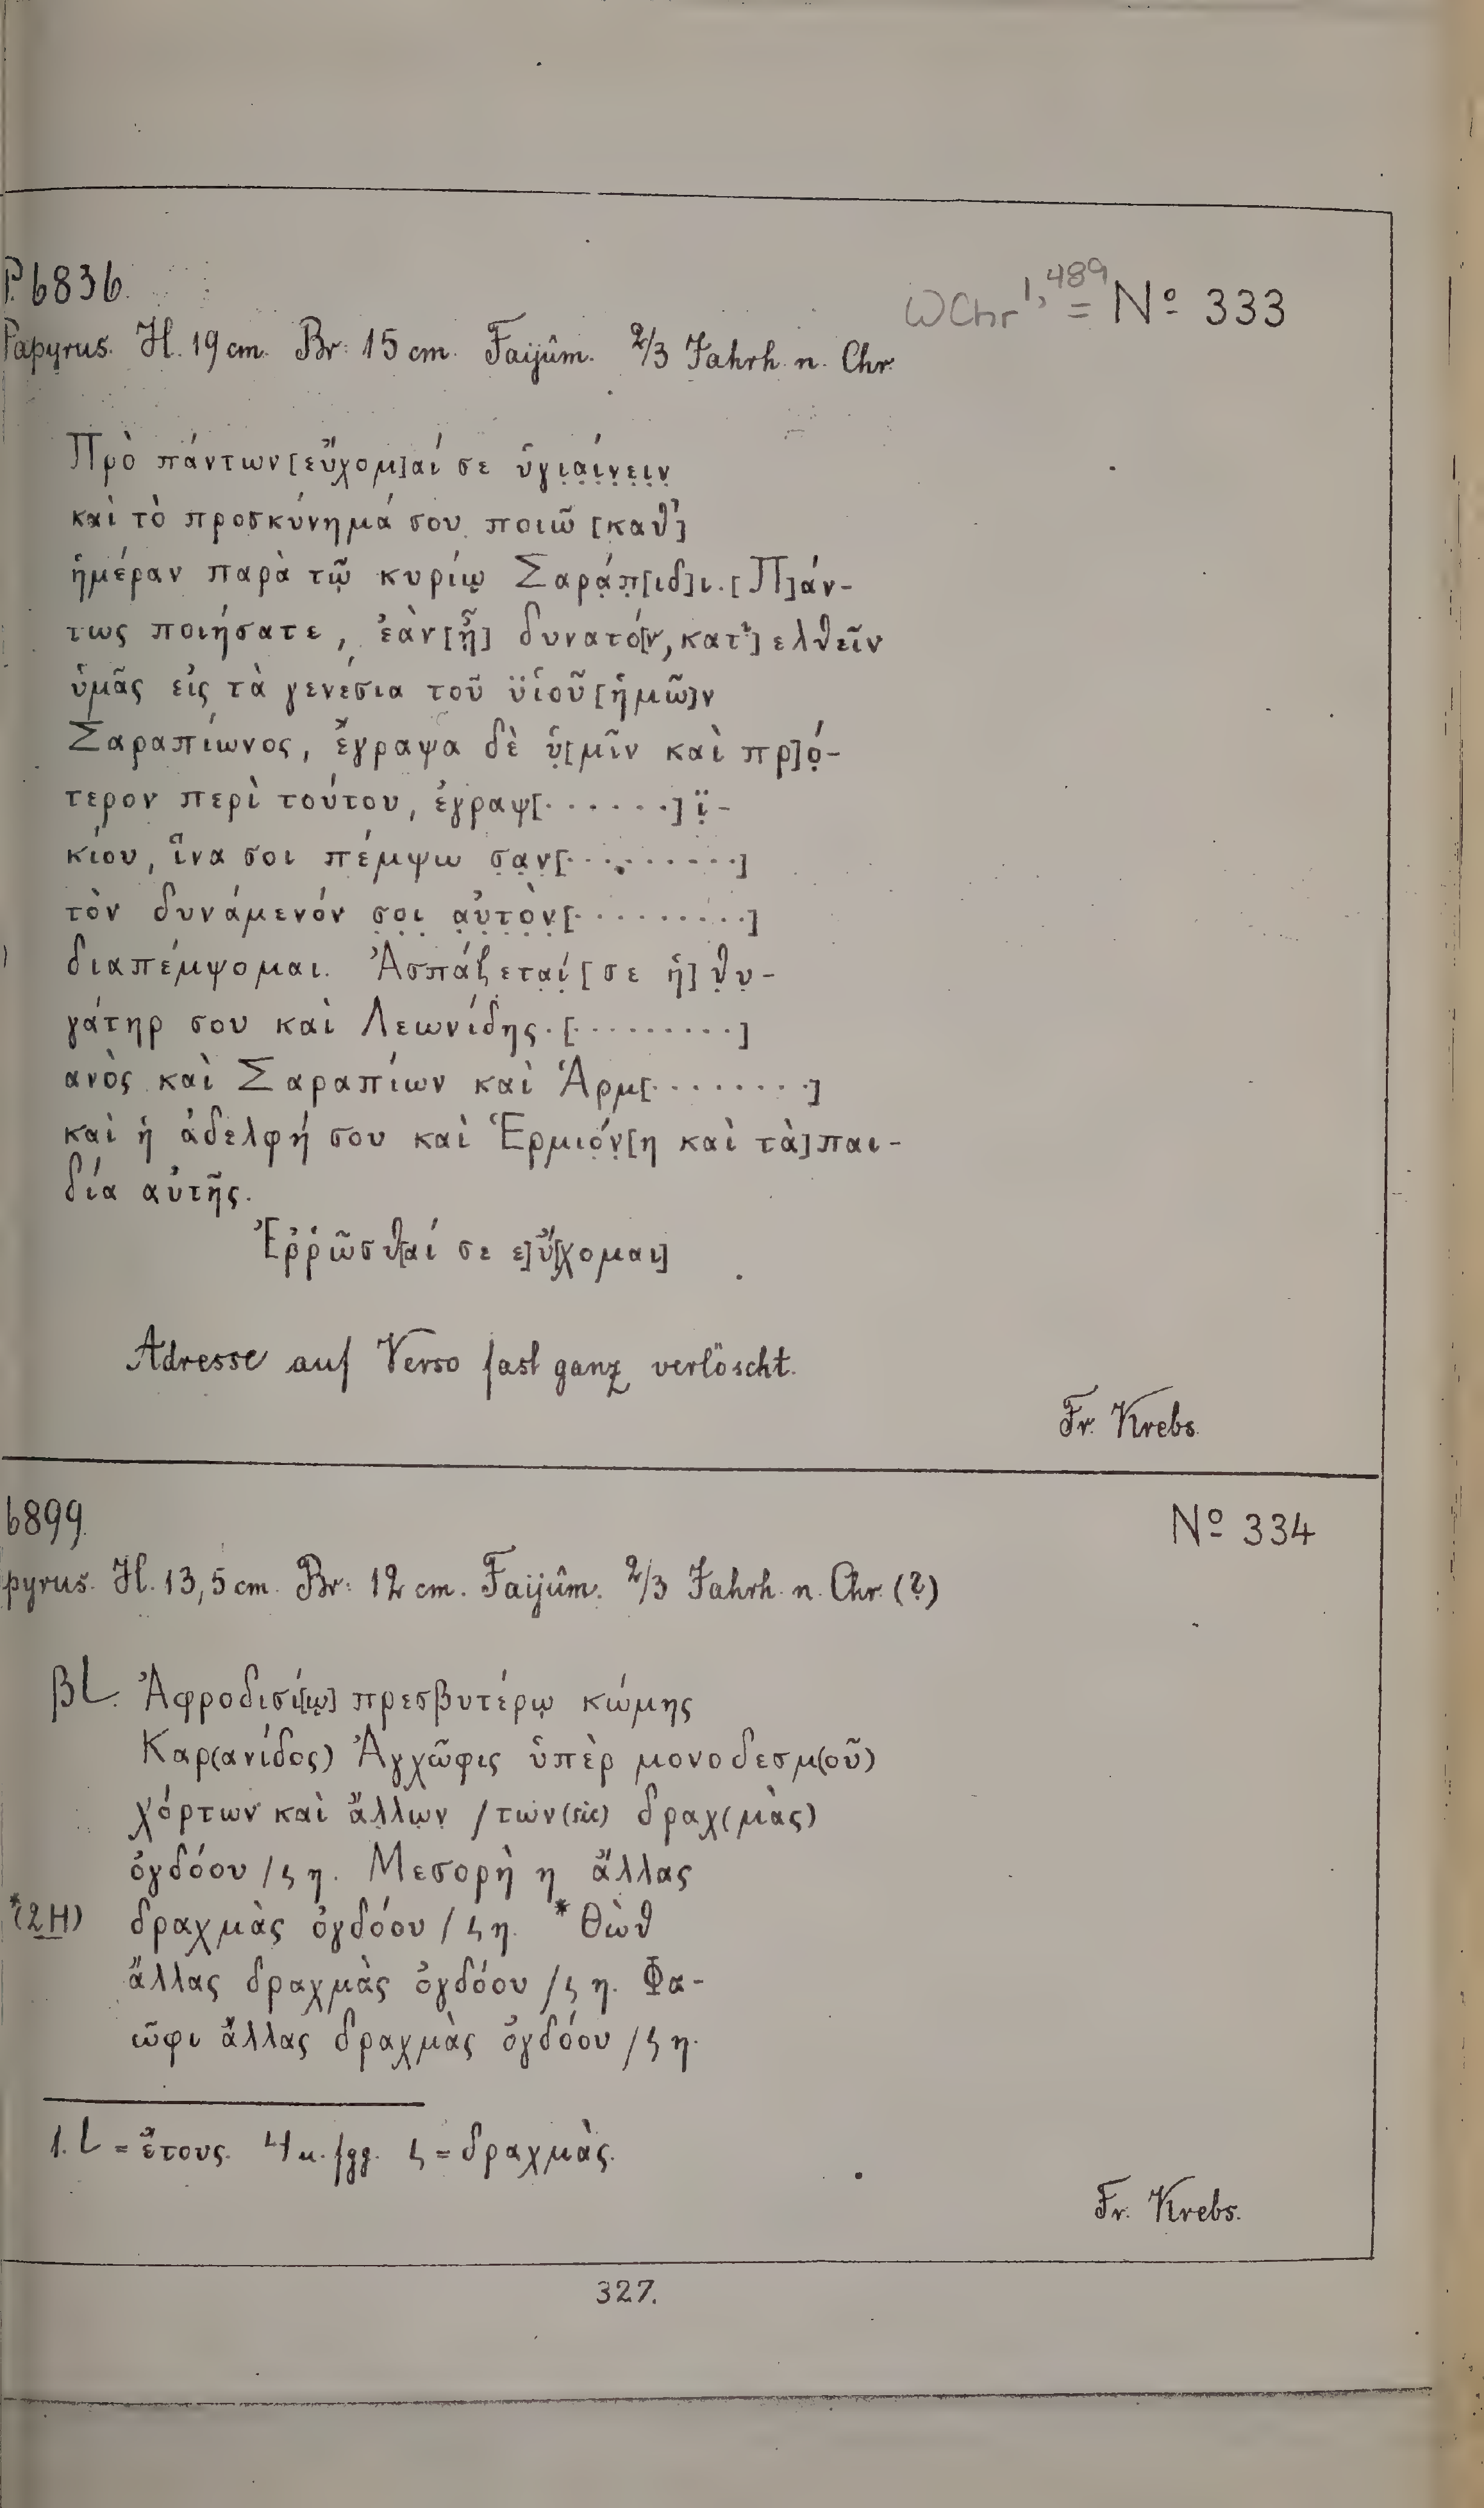 P. 6836.
WChr 1, 489 = Nº 333
Papyrus. H. 19 cm. Br: 15 cm. Faijûm. 2/3 Jahrh. n. Chr.
Πρὸ πάντων [εὔχομ]αί σε ὑγι̣α̣ί̣ν̣ε̣ι̣ν̣
καὶ τὸ προσκύνημά σου ποιῶ [καθ']
ἡμέραν παρὰ τῷ κυρίῳ Σαρά̣π̣[ιδ]ι. [Π]άν-
τως ποιήσατε, ἐὰν [ᾖ] δυνατό[ν, κατ'] ελθεῖν
ὑμᾶς εἰς τὰ γενέσια τοῦ ϋἱοῦ [ἡμῶ]ν
Σαραπίωνος, ἔγραψα δὲ ὑ̣[μῖν καὶ πρ]ό̣-
τερον περὶ τούτου, ἐγραψ[· · · · · ·] ϊ̣-
κίου, ἵνα σοι πέμψω σ̣α̣ν̣[· · · · · · · · ·]
τὸν δυνάμενόν σ̣ο̣ι̣ α̣ὐ̣τ̣ὸ̣ν̣[· · · · · · · · ·]
διαπέμψομαι. Ἀσπάζετα̣ί̣ [σε ἡ] θ̣υ̣-
γάτηρ σου καὶ Λεωνίδης. [· · · · · · · · ·]
ανὸς καὶ Σαραπίων καὶ Ἁρμ[· · · · · · · ·]
καὶ ἡ ἀδελφή σου καὶ Ἑρμιό̣ν̣[η καὶ τὰ] παι-
δία αὐτῆς.
Ἐῤῥῶσθ[αί σε ε]ὔ[χομαι]
Adresse auf Verso fast ganz verlöscht.
Fr. Krebs.
6899.
Nº 334
pyrus. H. 13,5 cm. Br: 12 cm. Faijûm. 2/3 Jahrh. n. Chr. (?)
βL. Ἀφροδισί[ῳ] πρεσβυτέρῳ κώμης
Καρ(ανίδος) Ἀγχῶφις ὑπὲρ μονοδεσμ(οῦ)
χόρτων καὶ ἄ̣λ̣λ̣ω̣ν̣ /των (sic) δραχ(μὰς)
ὀγδόου /ς η. Μεσορὴ η ἄλλας
*(2H) δραχμὰς ὀγδόου /ς η. *Θὼθ
ἄλλας δραχμὰς ὀγδόου /ς η. Φα-
ῶφι ἄλλας δραχμὰς ὀγδόου /ς η.
1. L = ἔτους. 4 u. fgg. ς = δραχμὰς.
Fr. Krebs.
327.